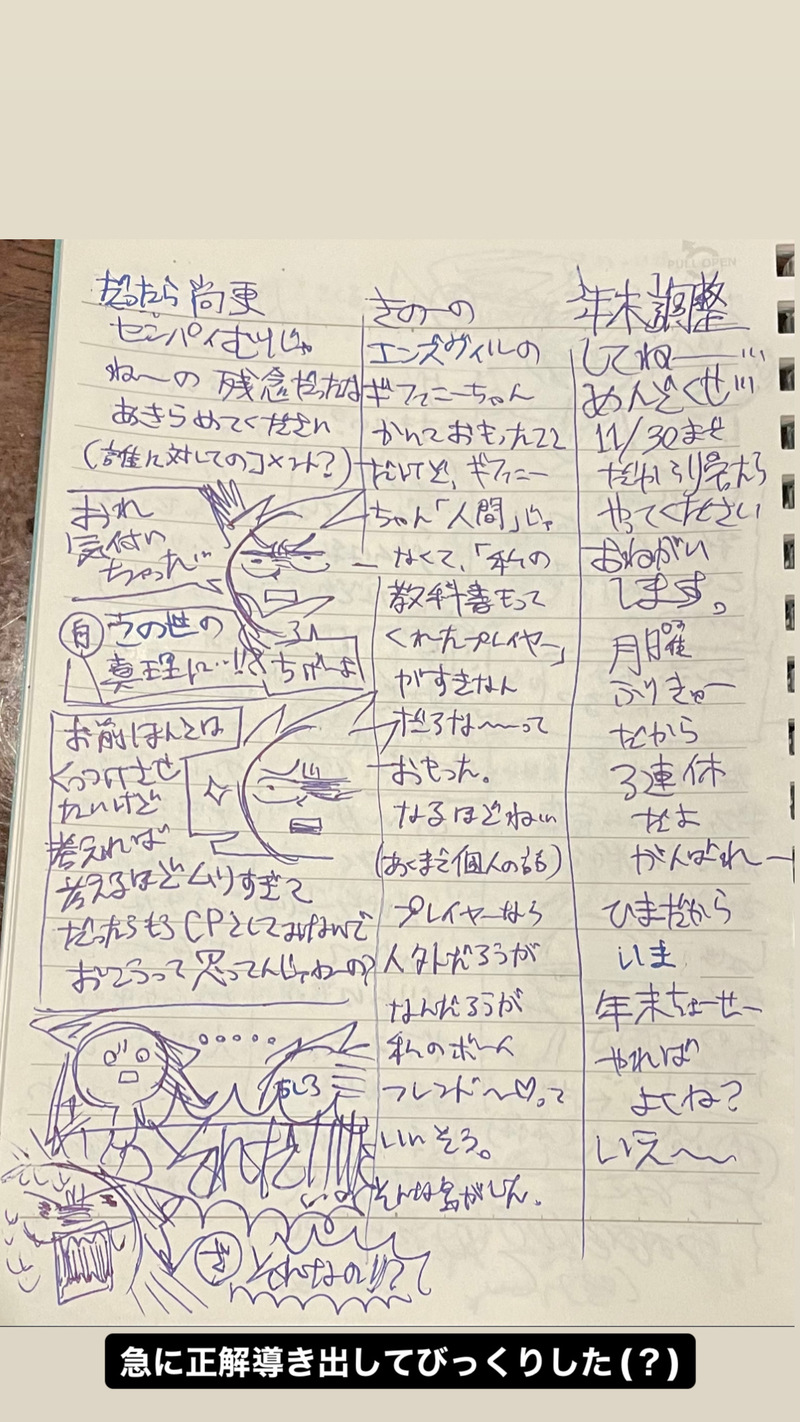 年末調整
してねー
めんどくせ
11/30まで
だから
やってください
おねがい
します。
月曜
ふりきゅー
だから
3連休
だよ
がんばれー
ひまだから
いま
年末ちょーせー
やれば
よくね?
いえ〜〜
きのーの
エンズヴィルの
ギファニーちゃん
かいておもったこと
だけど、ギファニー
ちゃん「人間」じゃ
なくて、「私の
教科書もって
くれたプレイヤー」
がすきなん
だろな〜〜って
おもった。
なるほどねい
(あくまで個人の話)
プレイヤーなら
人外だろうが
なんだろうが
私のボーイ
フレンド〜♡って
いいそう。
そんな気がした。
だったら尚更
センパイむりじゃ
ね〜の 残念だったな
あきらめてください
(誰に対してのコメント?)
おれ
気付い
ちゃった
白 この世の
真理に…!!
ちげーよ
お前ほんとは
くっつけさせ
たいけど
考えれば
考えるほどムリすぎて
だったらもうCPとしてみないで
おこうって思ってんじゃねーの?
おしろ
それだ
それなのか?
PULL OPEN
急に正解導き出してびっくりした(?)